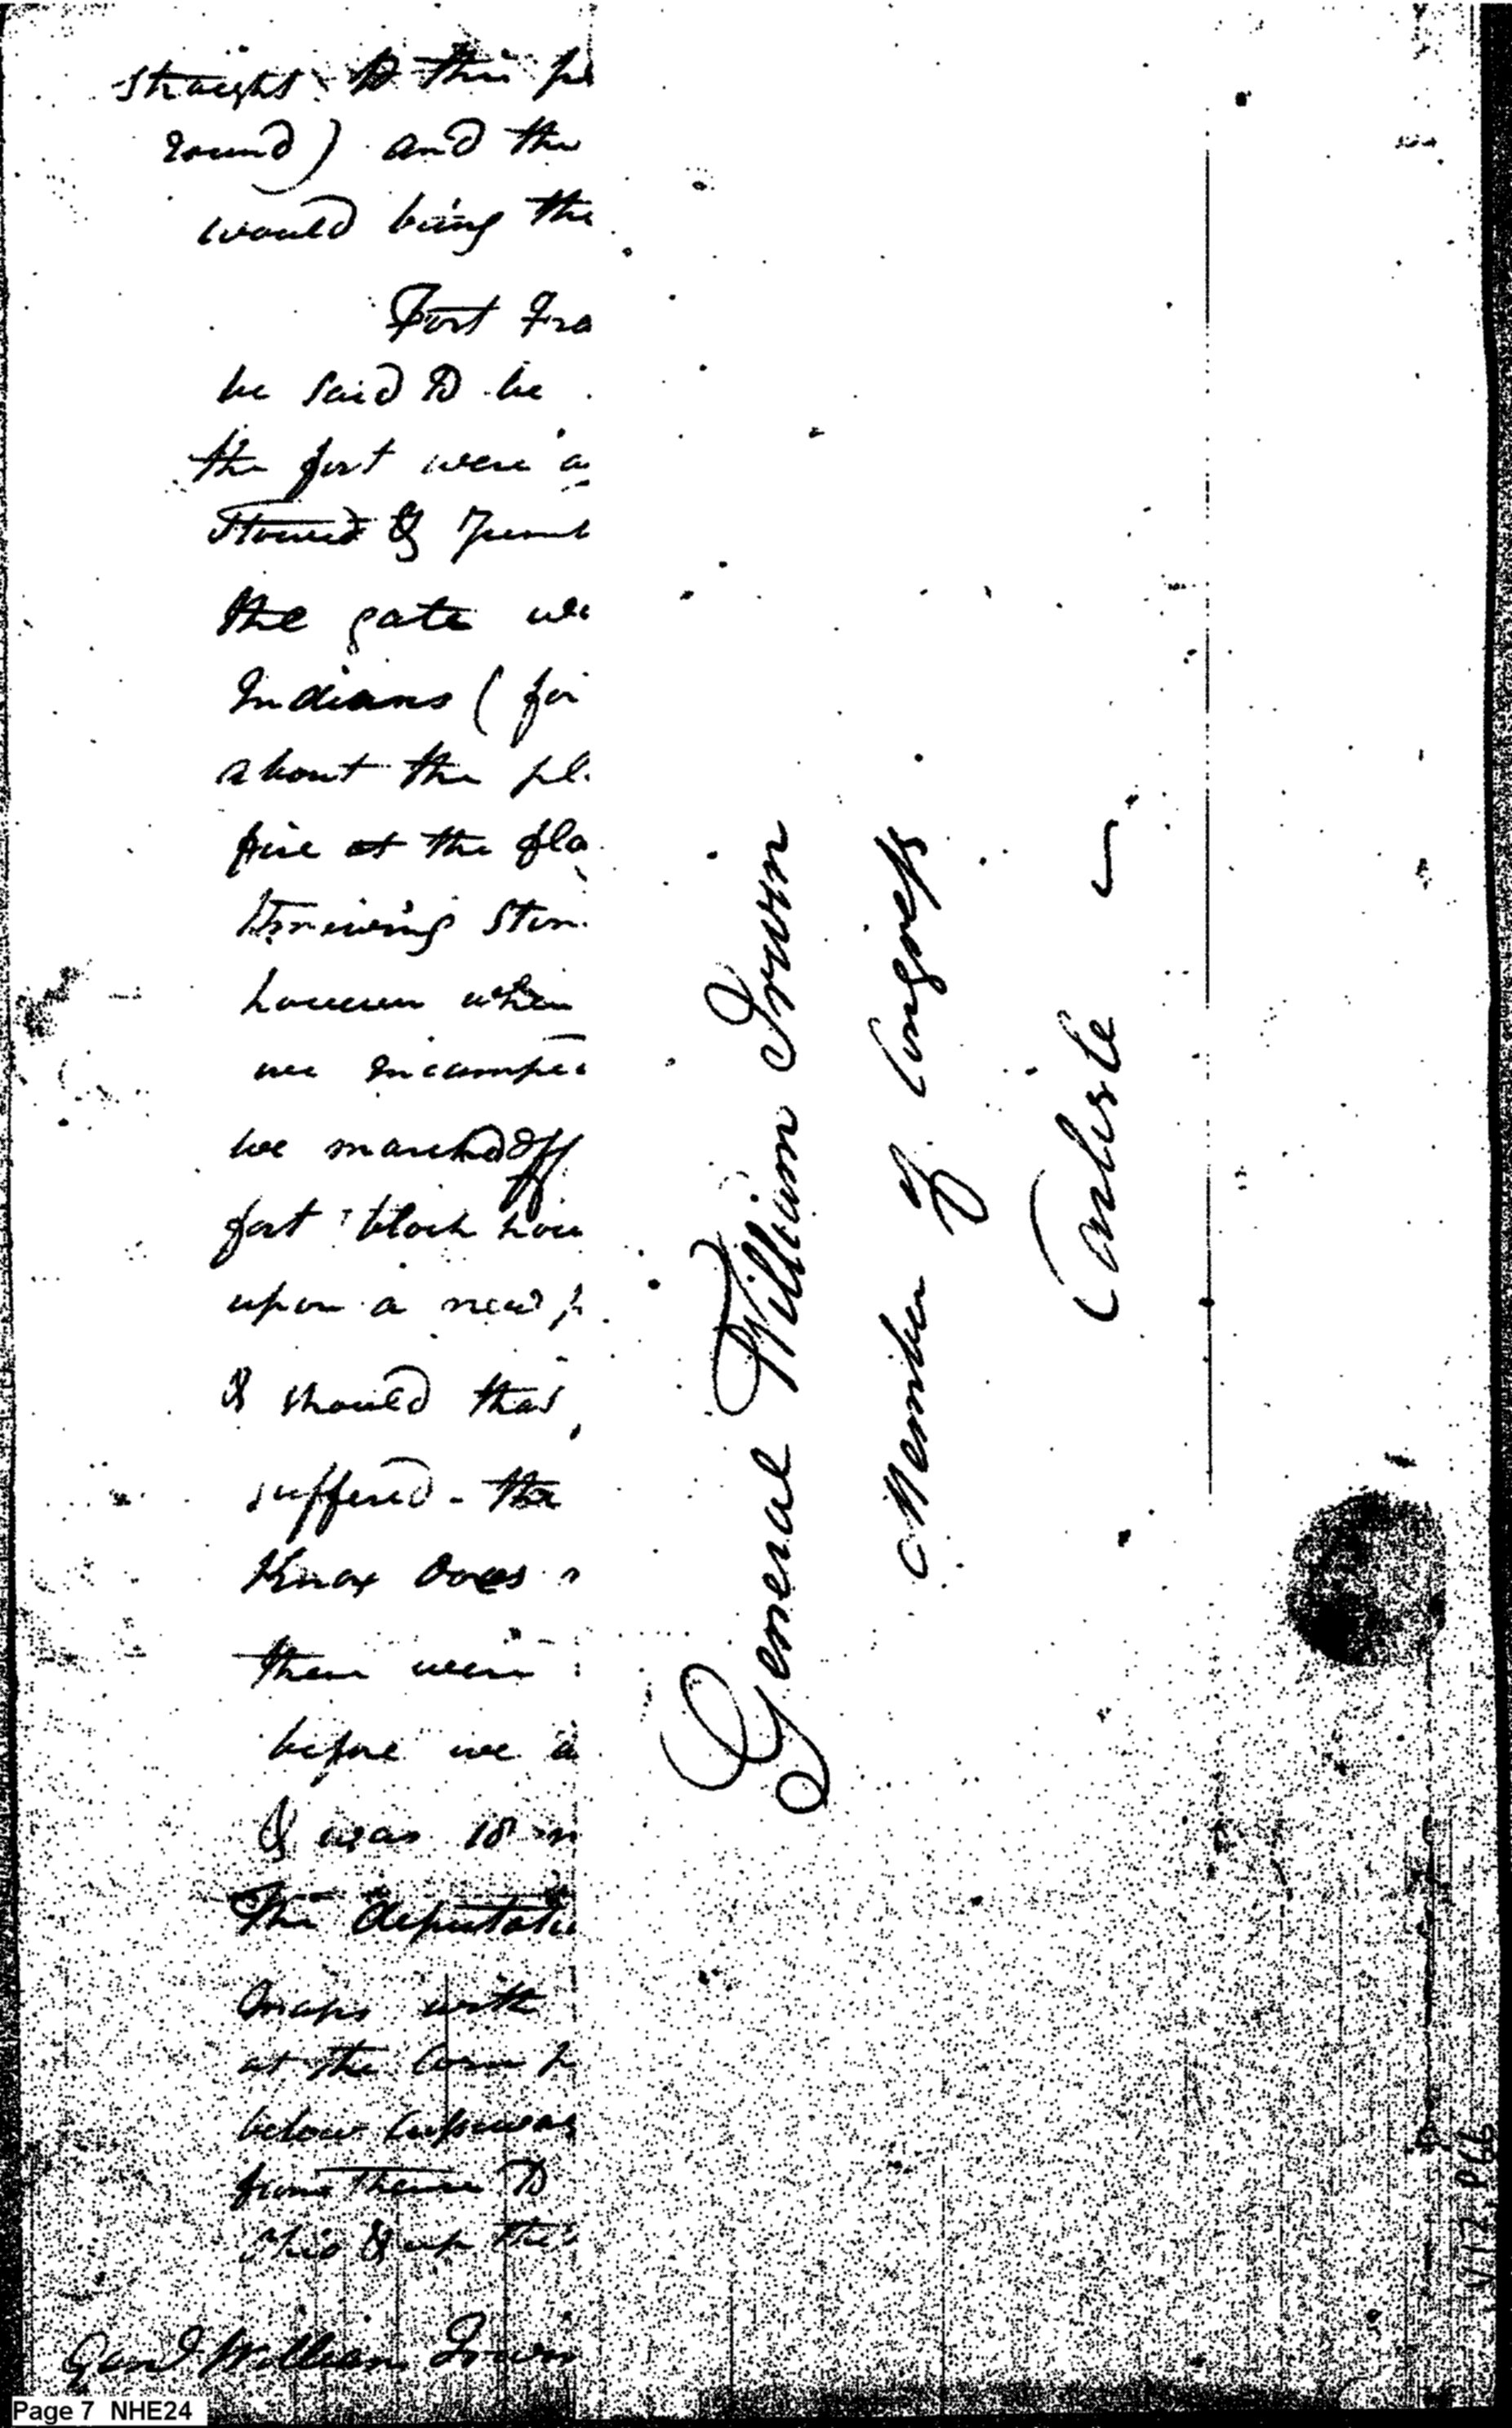 straight to this
round) and the
would bring the
Fort Fra
be said to be
the fort were a
Stoned &
the gate we
Indians (for
about the pl
fire at the fla
throwing ston
however when
we incamped
we marched off
fort block hou
upon a new p
I should that
suffered - the
Knox does n
there were
before we a
I was 18 m
The deputatio
maps with
at the Corn
below
from Thence to
Ohio & up the
Genl William Irwin
General William Irwin
Member of Congress
Carlisle
V12 P66
Page 7 NHE24